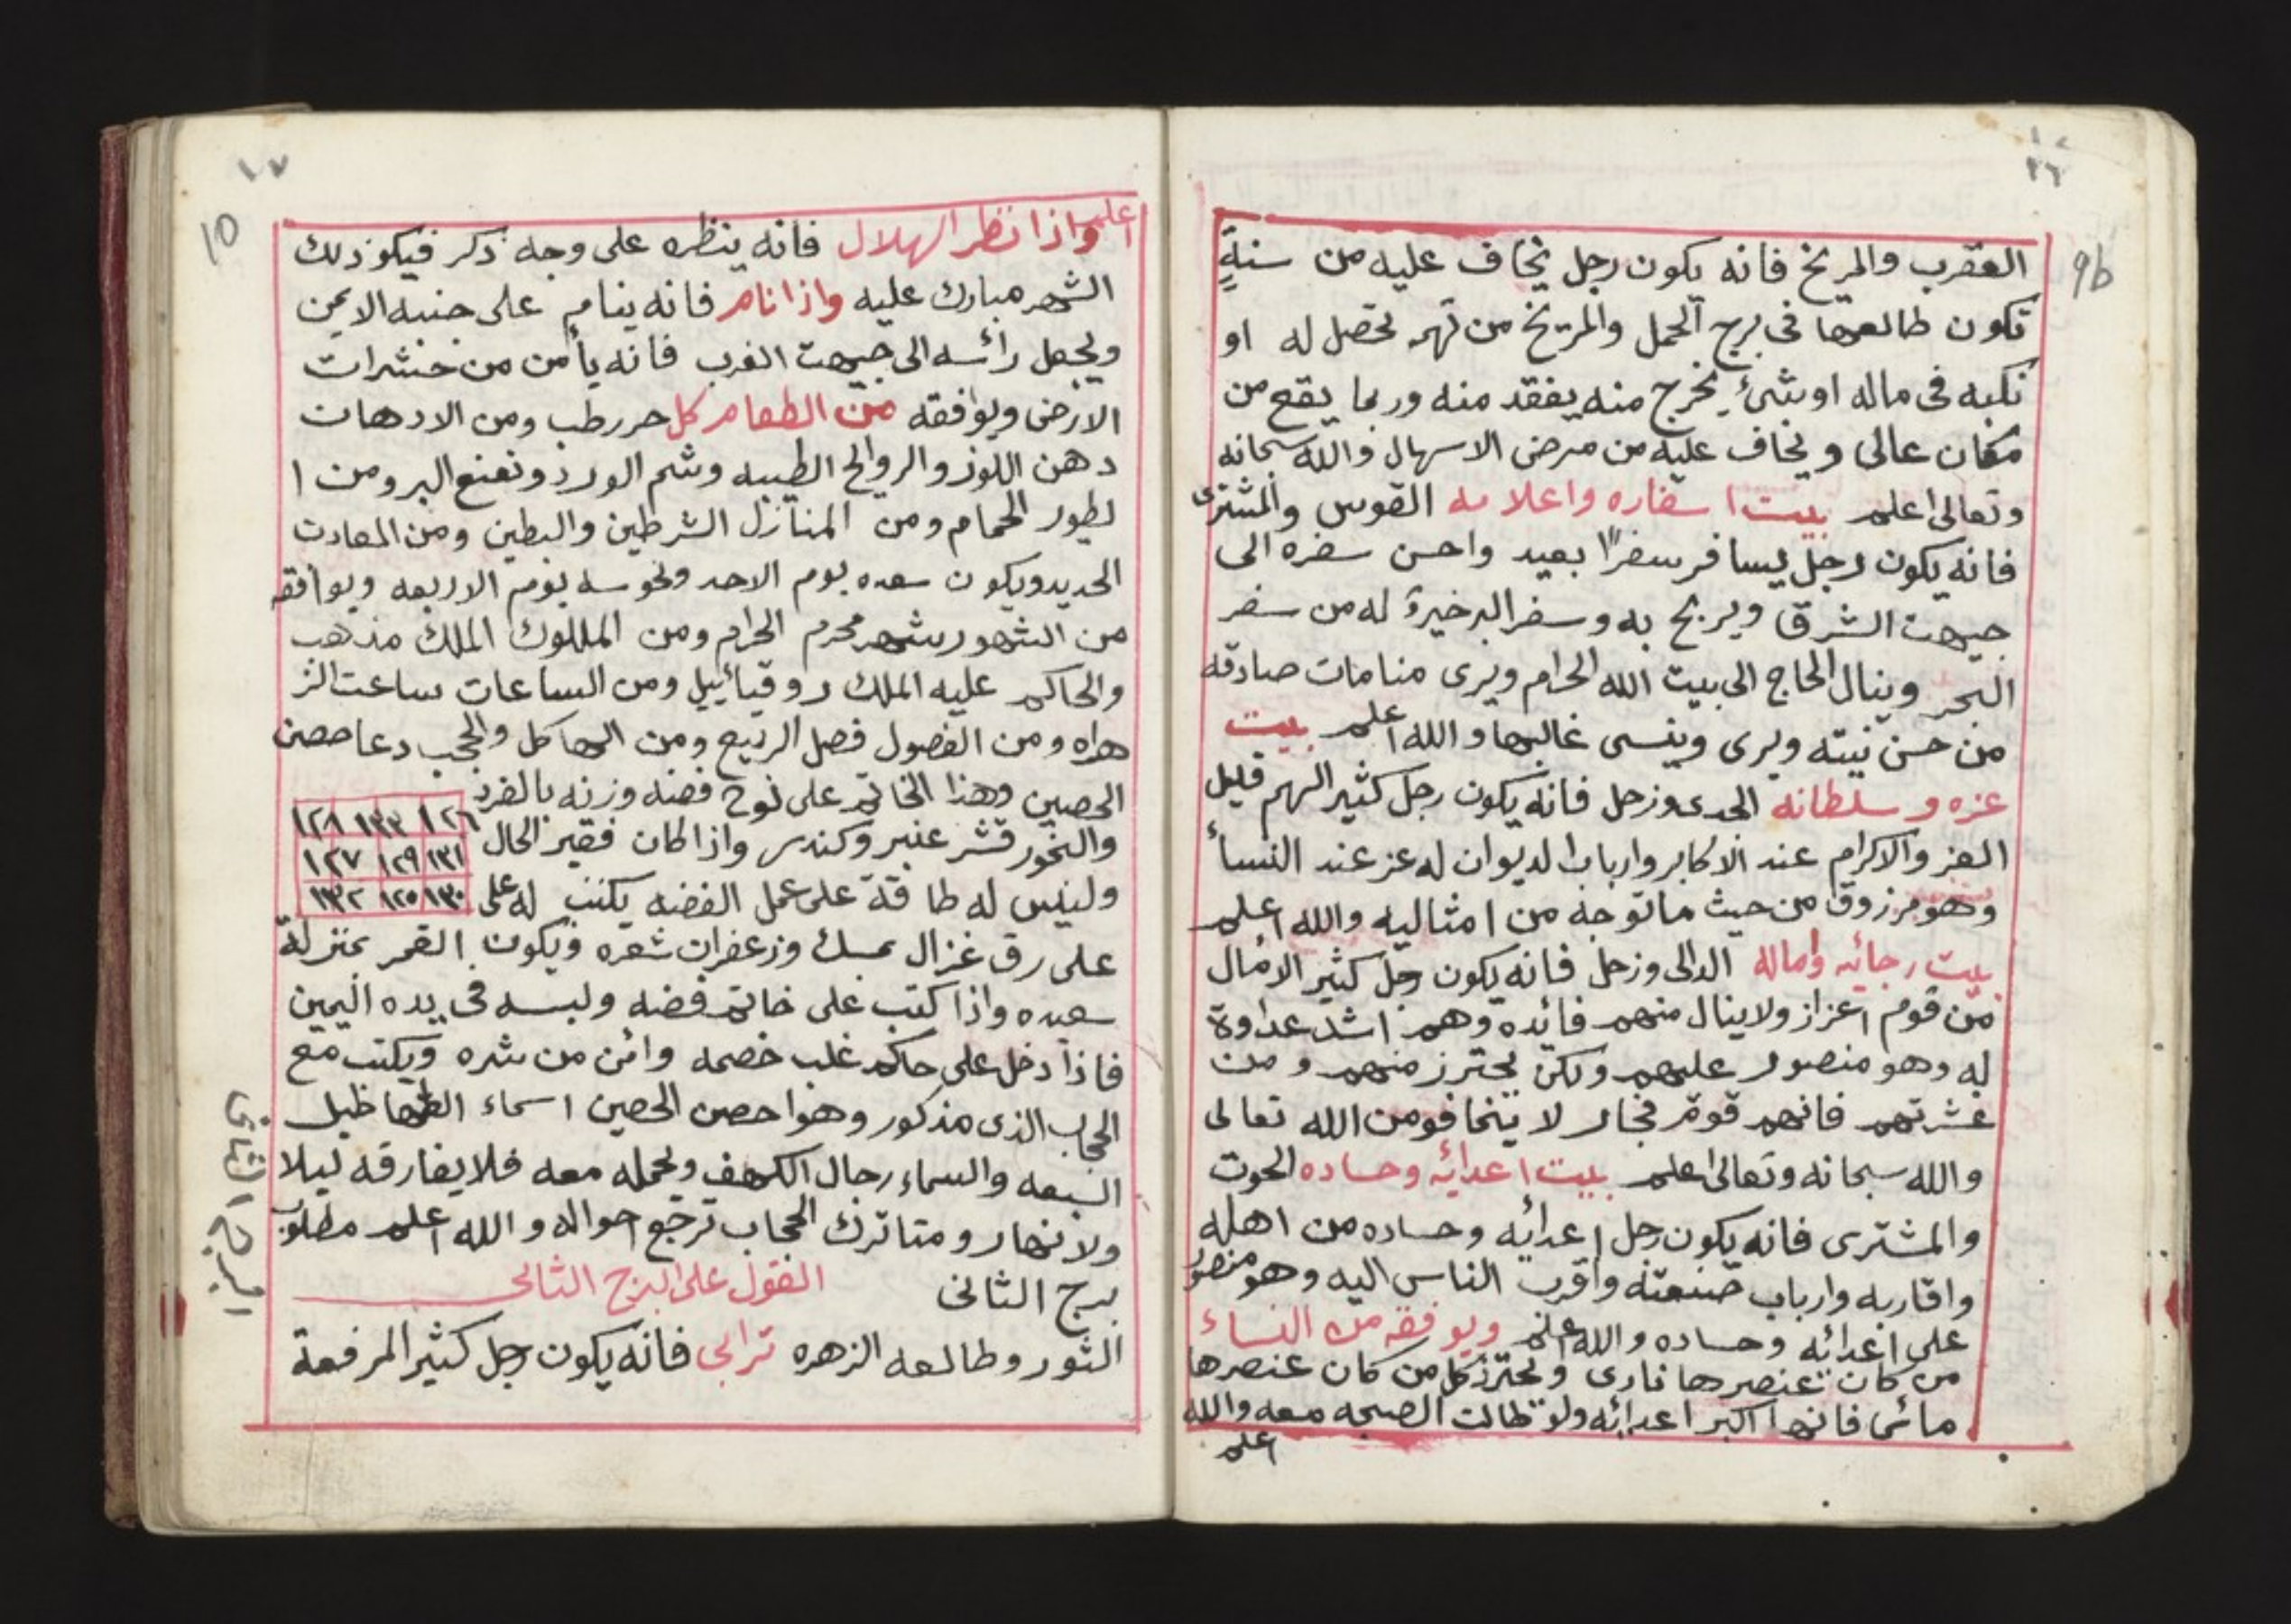 ١٦
9b
العقرب والمريخ فانه يكون رجل يخاف عليه من سنةٍ
تكون طالعها فى برج الحمل والمريخ من تهمه تحصل له او
نكبه فى ماله اوشئ يخرج منه يفقد منه وربما يقع من
مكان عالى ويخاف عليه من مرض الاسهال والله سبحانه
وتعالى اعلم بيت اسفاره واعلامه القوس والمشترى
فانه يكون رجل يسافر سفرًا بعيد واحسن سفره الى
جيهت الشرق ويربح به وسفر البر خيرة له من سفر
البحر وينال الحاج الى بيت الله الحرام ويرى منامات صادقه
من حسن نيته ويرى وينسى غالبها والله اعلم بيت
عزه وسلطانه الجدى وزحل فانه يكون رجل كثير الهم قليل
العز والاكرام عند الاكابر وارباب الديوان له عز عند النسأ
وهو مرزوق من حيث ماتوجه من امثاليه والله اعلم
بيت رجائه واماله الدالى وزحل فانه يكون رجل كثير الامال
من قوم اعزاز ولاينال منهم فائده وهم اشد عداوة
له وهو منصور عليهم ولكن يحترز منهم ومن
عشرتهم فانهم قوم فجار لا يتخافو من الله تعالى
والله سبحانه وتعالى اعلم بيت اعدائه وحساده الحوت
والمشترى فانه يكون رجل اعدائه وحساده من اهله
واقاربه وارباب صنعته واقرب الناس اليه وهو منصور
على اعدائه وحساده والله اعلم ويوفقه من النساء
من كان عنصرها نارى ويحترز كل من كان عنصرها
مائى فانها اكبر اعدائه ولو طالت الصبحه معه والله
اعلم
١٧
10
اعلم واذا نظر الهلال فانه ينظره على وجه ذكر فيكو ذلك
الشهر مبارك عليه واذا نام فانه ينام على جنبه الايمن
ويجعل رائسه الى جيهت الغرب فانه يأمن من خشرات
الارض ويوافقه من الطعام كل حر رطب ومن الادهان
دهن اللوز والروالح الطيبه وشم الورد ونعنع البر ومن ا
لطيور الحمام ومن المنازل الشرطين والبطين ومن المعادن
الحديد ويكون سعده يوم الاحد ونحوسه يوم الاربعه ويوافقه
من الشهور شهر محرم الحرام ومن المللوك الملك مذهب
والحاكم عليه الملك روقيائييل ومن الساعات ساعت الز
هراه ومن الفصول فصل الربيع ومن الهاكل والحجب دعا حصن
الحصين وهذا الخاتم على لوح فضه وزنه بالفرد
والبخور قشر عنبر وكندر واذا كان فقير الحال
وليس له طاقة على عمل الفضه يكتب له على
١٢٦ ١٣٣ ١٢٨
١٣١ ١٢٩ ١٢٧
١٣٠ ١٢٥ ١٣٢
على رق غزال بمسك وزعفران شعره ويكون القمر بمنزلة
سعيده واذا كتب على خاتم فضه ولبسه فى يده اليمين
فاذا دخل على حاكم غلب خصمه وائمن من شره ويكتب مع
الحجاب الذى مذكور وهوا حصن الحصين اسماء الطهاطيل
السبعه والسماء رجال الكهف ويحمله معه فلا يفارقه ليلا
ولا نهار ومتا ترك الحجاب ترجع احواله والله اعلم مطلوب
برج الثانى القول على البرج الثانى
الثور وطالعه الزهره ترابى فانه يكون رجل كثير المرفعة
البرج الثانى